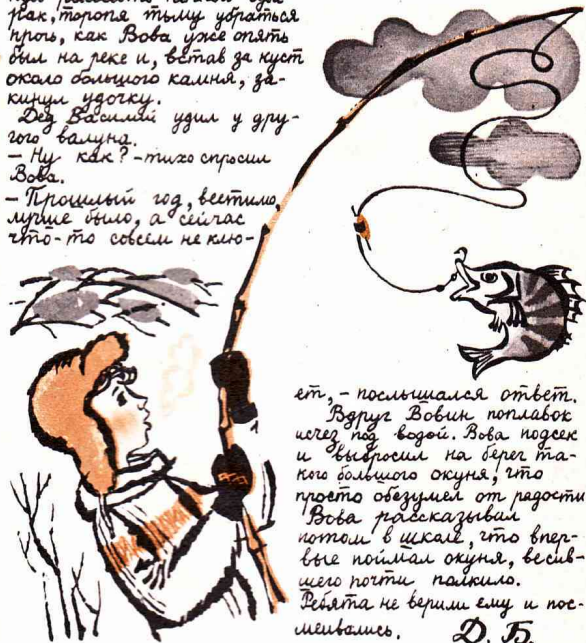 рак, торопя тьму убраться
прочь, как Вова уже опять
был на реке и, встав за куст
около большого камня, за-
кинул удочку.
Дед Василий удил у дру-
гого валуна.
– Ну как? – тихо спросил
Вова.
– Прошлый год, вестимо,
лучше было, а сейчас
что-то совсем не клю-
ет, – послышался ответ.
Вдруг Вовин поплавок
исчез под водой. Вова подсек
и выбросил на берег та-
кого большого окуня, что
просто обезумел от радости
Вова рассказывал
потом в школе, что впер-
вые поймал окуня, весив-
шего почти полкило.
Ребята не верили ему и пос-
меивались.
Д. Б.